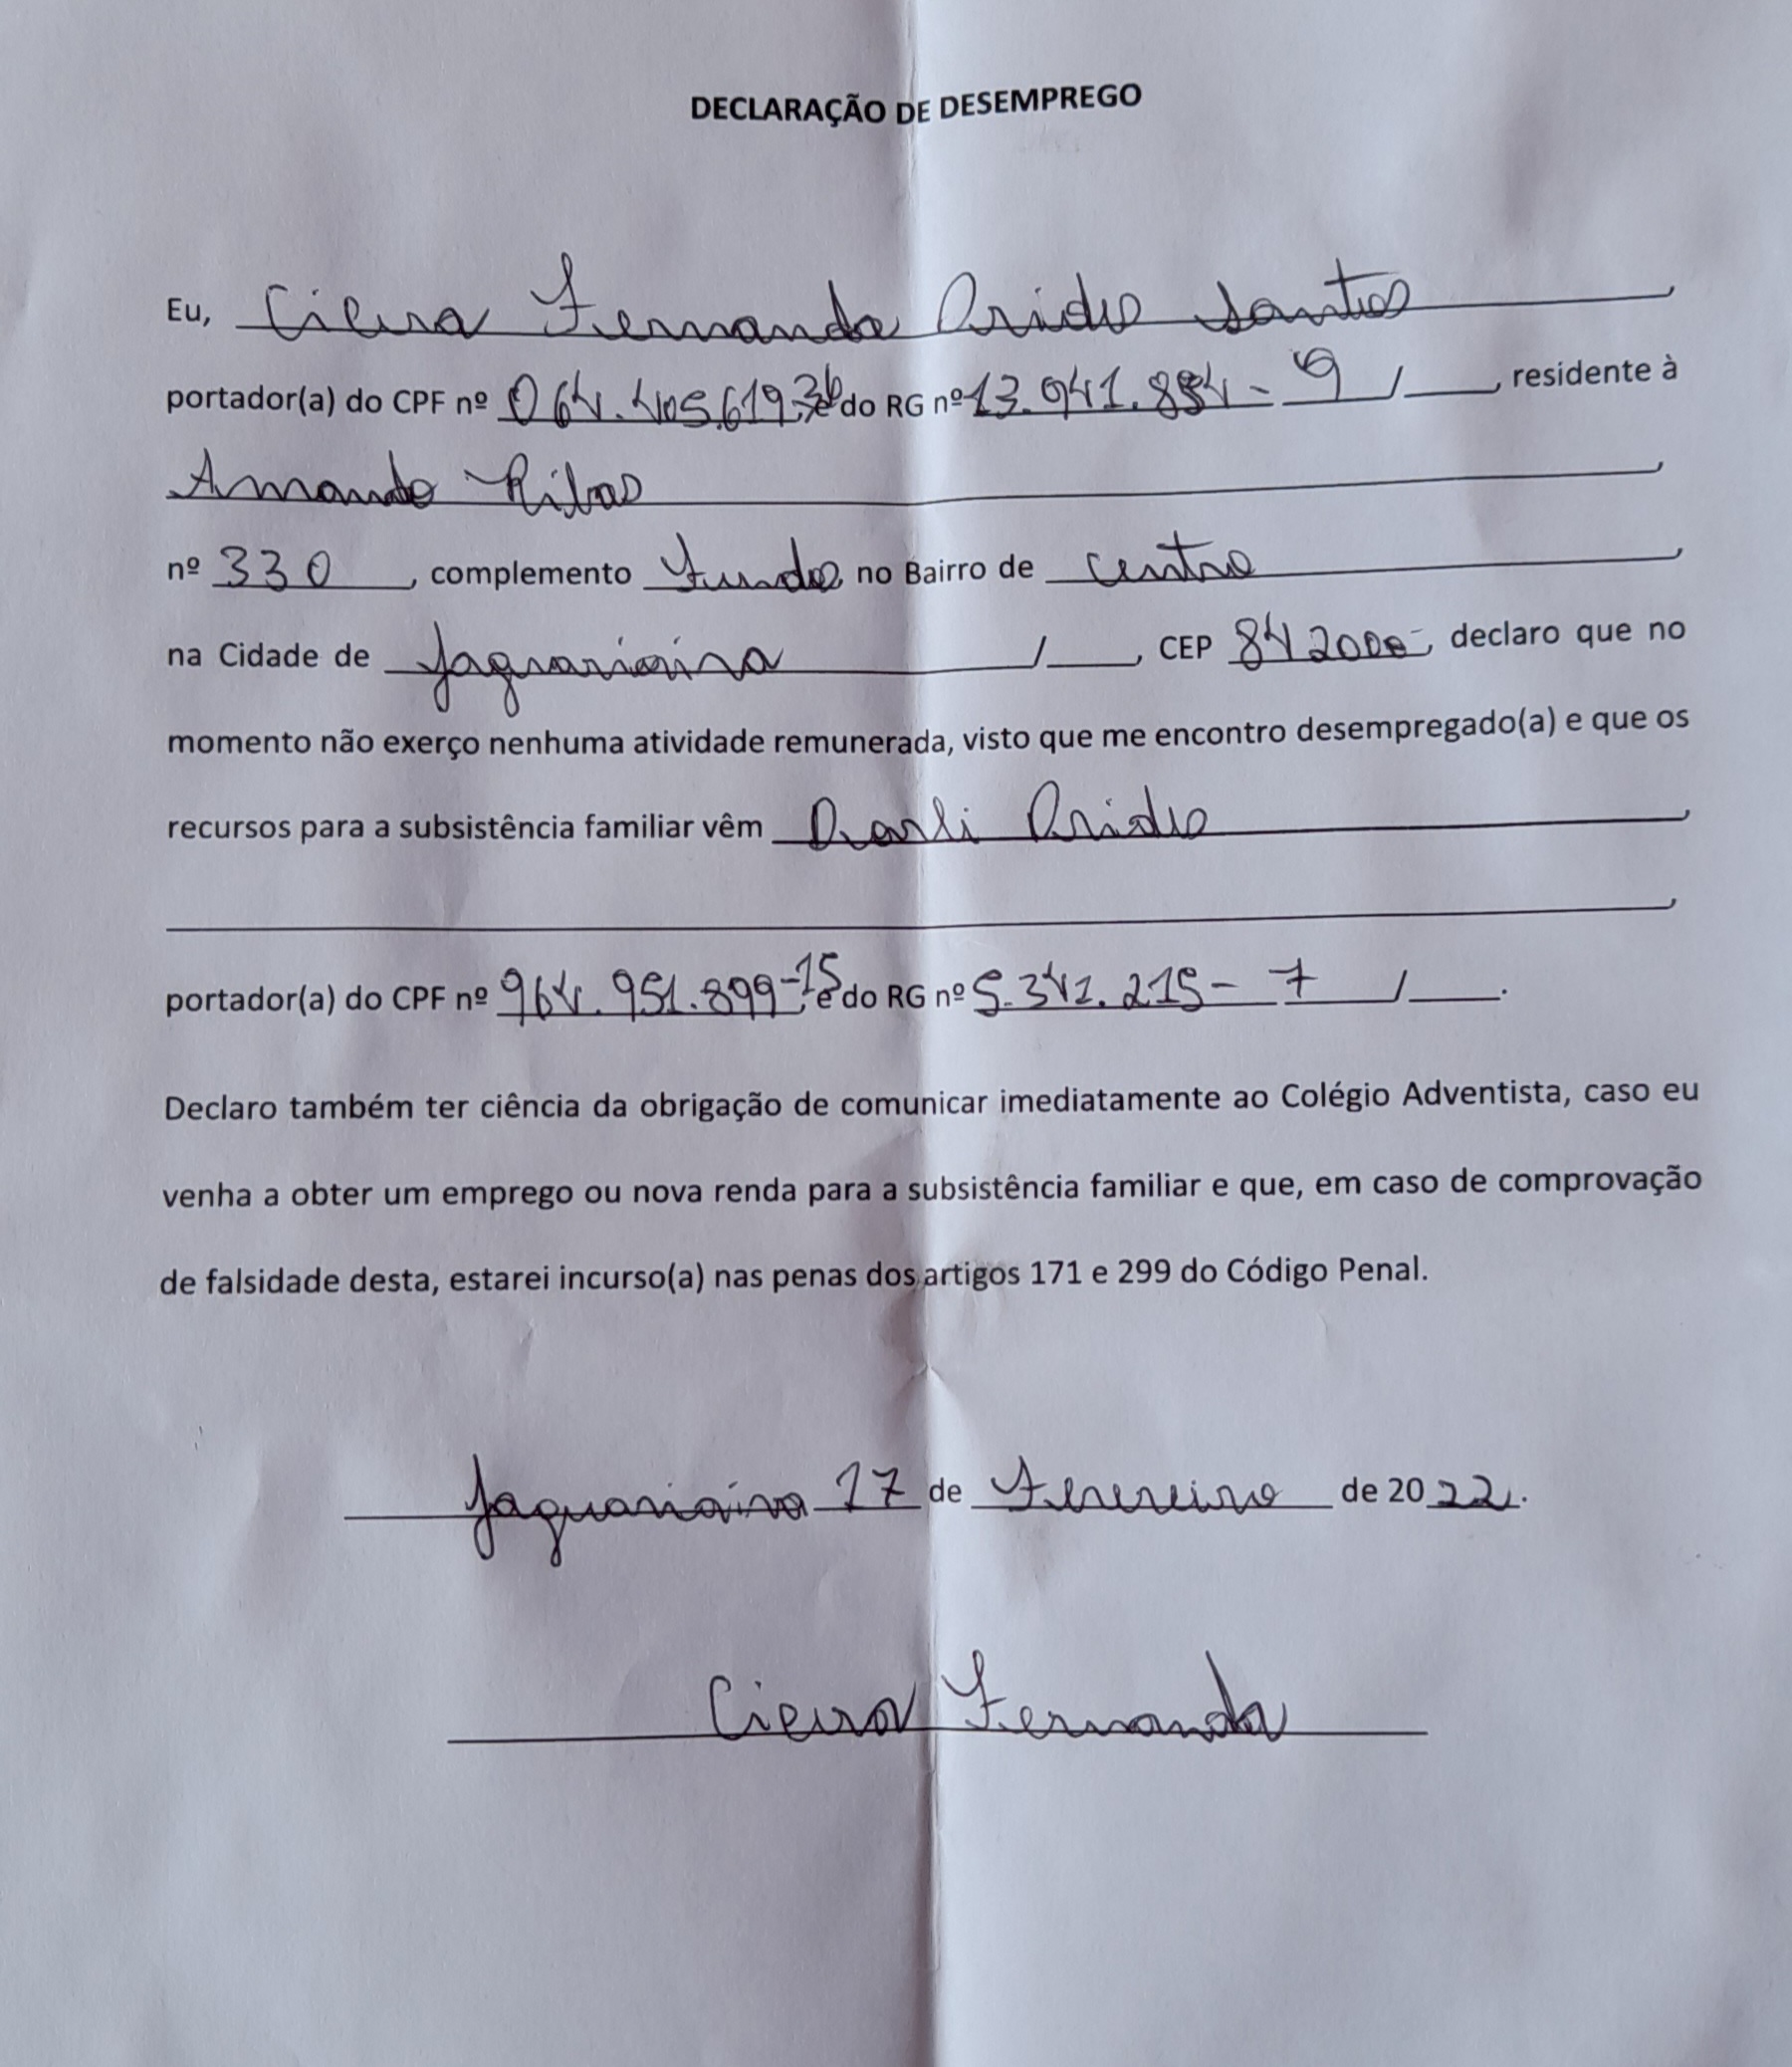 DECLARAÇÃO DE DESEMPREGO
Eu, Cieura Fernanda Aridio Santos,
portador(a) do CPF nº 064.405.619-36, e do RG nº 13.941.884-9 /____, residente à
Amando Ribas,
nº 330, complemento fundos no Bairro de Centro,
na Cidade de Jaguariaiva /____, CEP 842000, declaro que no
momento não exerço nenhuma atividade remunerada, visto que me encontro desempregado(a) e que os
recursos para a subsistência familiar vêm Darli Aridio,
portador(a) do CPF nº 964.951.899-15, e do RG nº 5.341.215-7 /____.
Declaro também ter ciência da obrigação de comunicar imediatamente ao Colégio Adventista, caso eu
venha a obter um emprego ou nova renda para a subsistência familiar e que, em caso de comprovação
de falsidade desta, estarei incurso(a) nas penas dos artigos 171 e 299 do Código Penal.
Jaguariaiva 17 de Fevereiro de 2022.
Cieura Fernanda